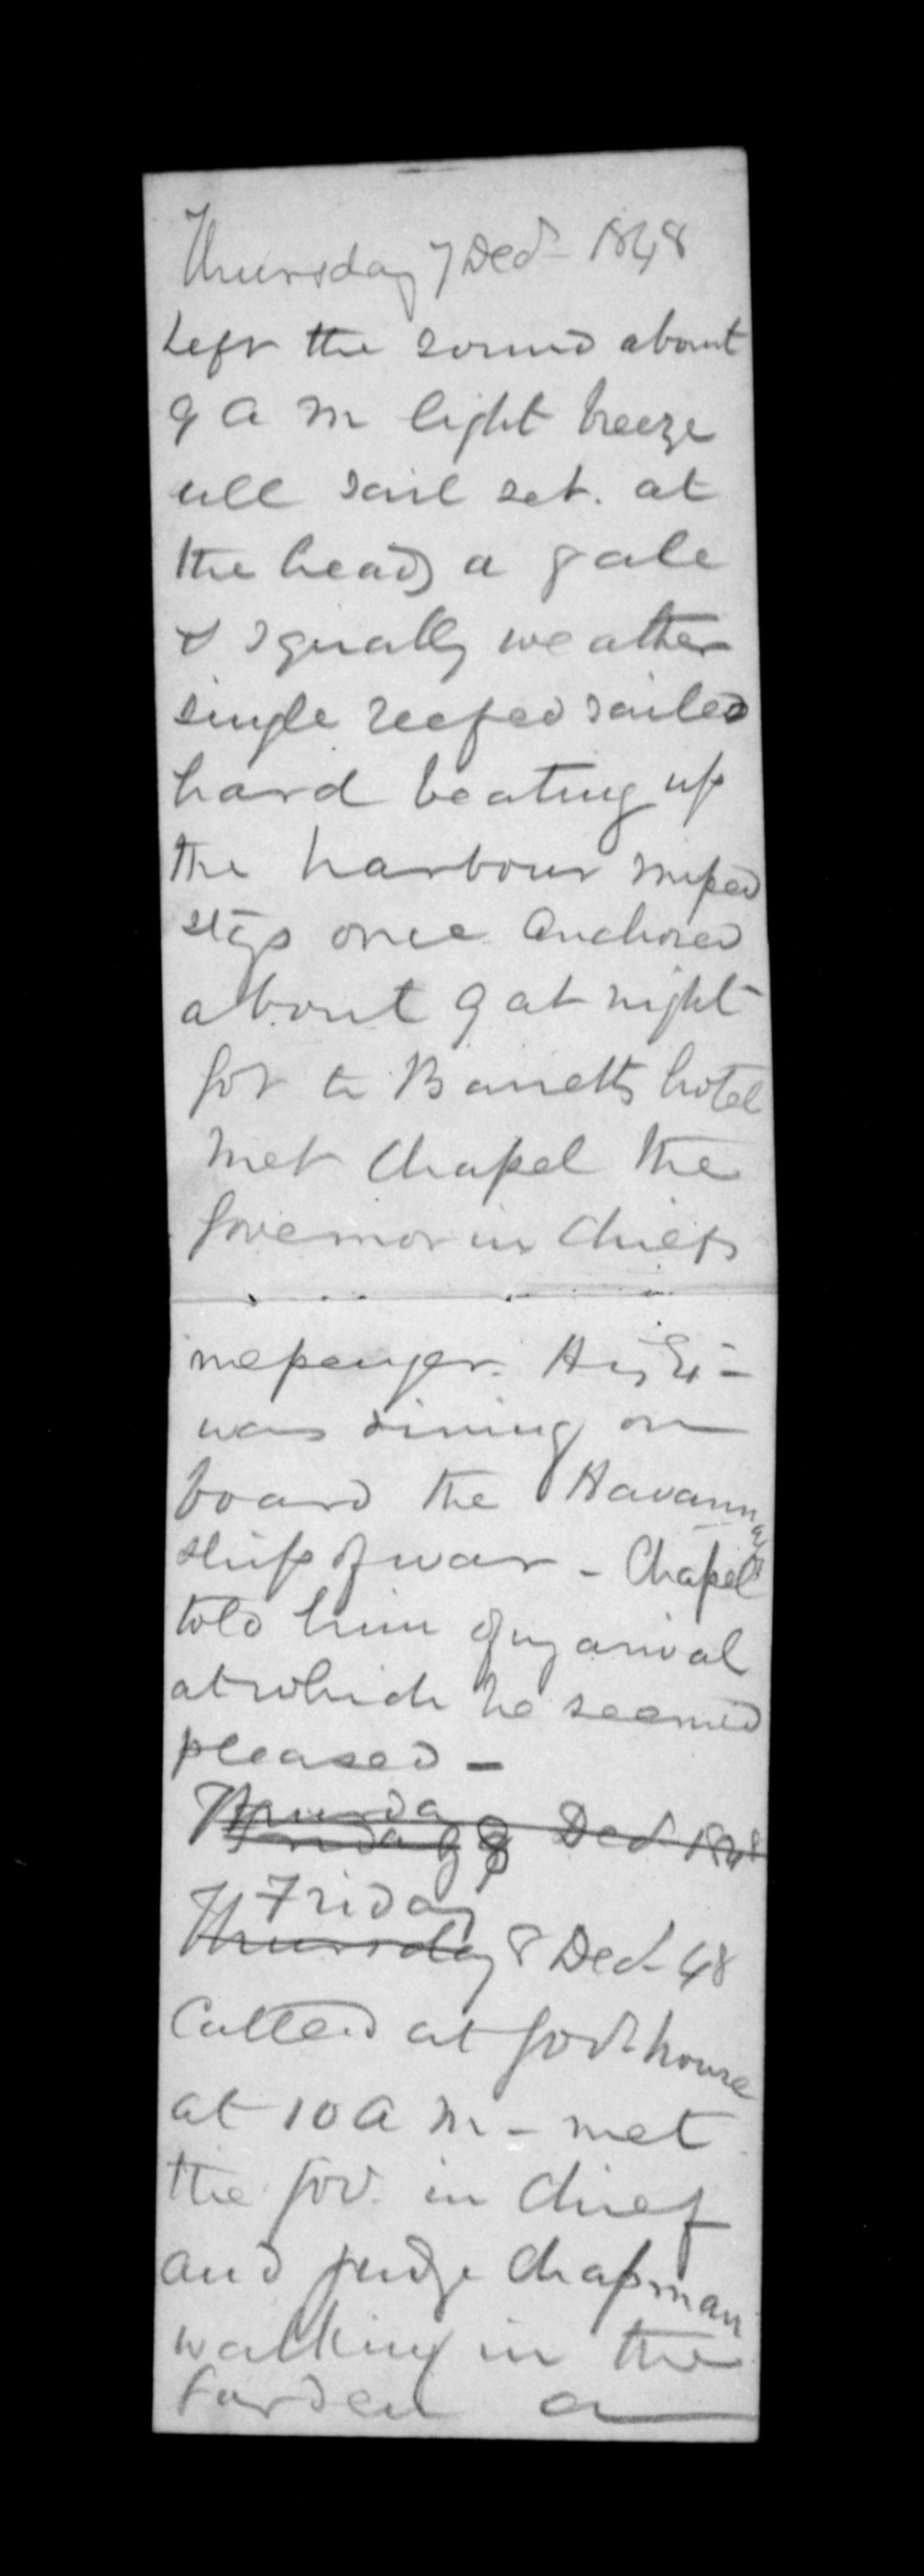 Thursday 7 Decr 1848
Left the sound about
9 a m light breeze
all sail set. at
the heads a gale
& squally weather
single reefed sailed
hard beating up
the harbour missed
stays once anchored
about 9 at night
got to Barretts hotel
met Chapel the
Governor in Chiefs
messenger. His Ex-
was dining on
board the Havannah
ship of war - Chapel
told him of my arival
at which he seemed
pleased -
Thursday
Friday 8 Decr 1848
Friday
Thursday 8 Decr 48
Called at Govt house
at 10 a m - met
the Gov. in Chief
and Judge Chapman
walking in the
Garden a